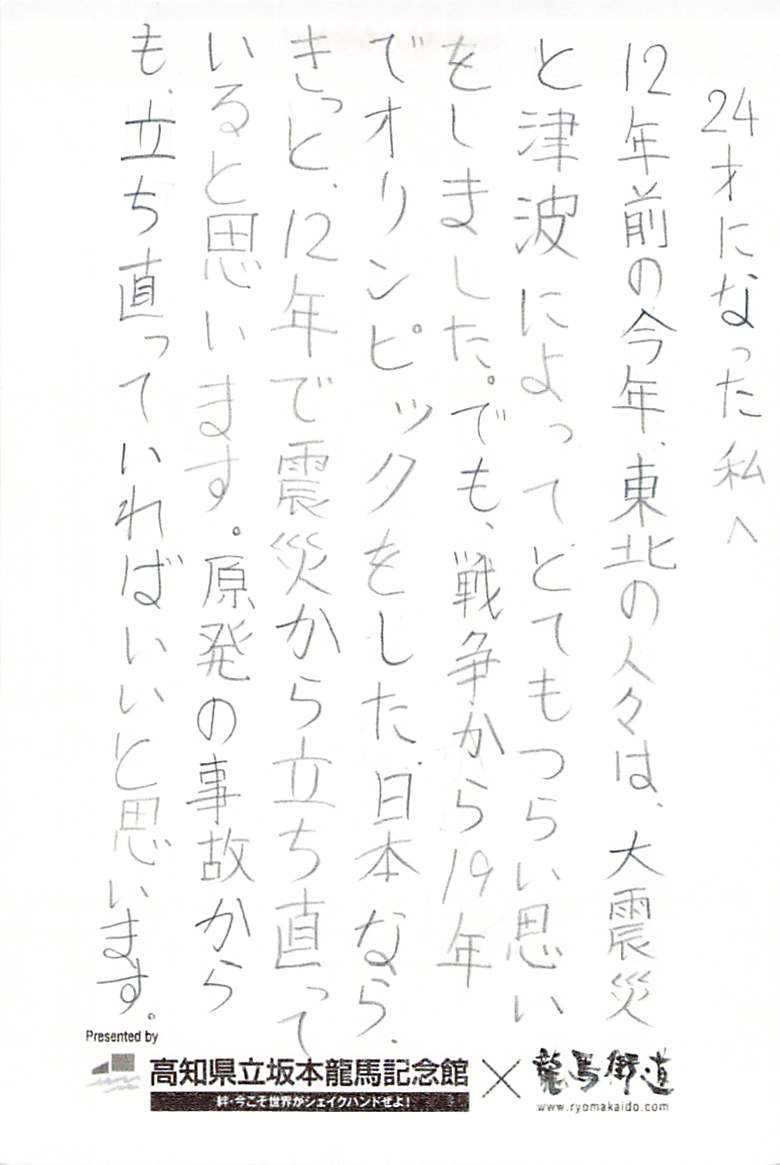 24才になった私へ
12年前の今年、東北の人々は、大震災
と津波によってとてもつらい思い
をしました。でも、戦争から19年
でオリンピックをした日本なら、
きっと、12年で震災から立ち直って
いると思います。原発の事故から
も、立ち直っていればいいと思います。
Presented by
高知県立坂本龍馬記念館 × 龍馬街道
絆・今こそ世界がシェイクハンドせよ!
www.ryomakaido.com